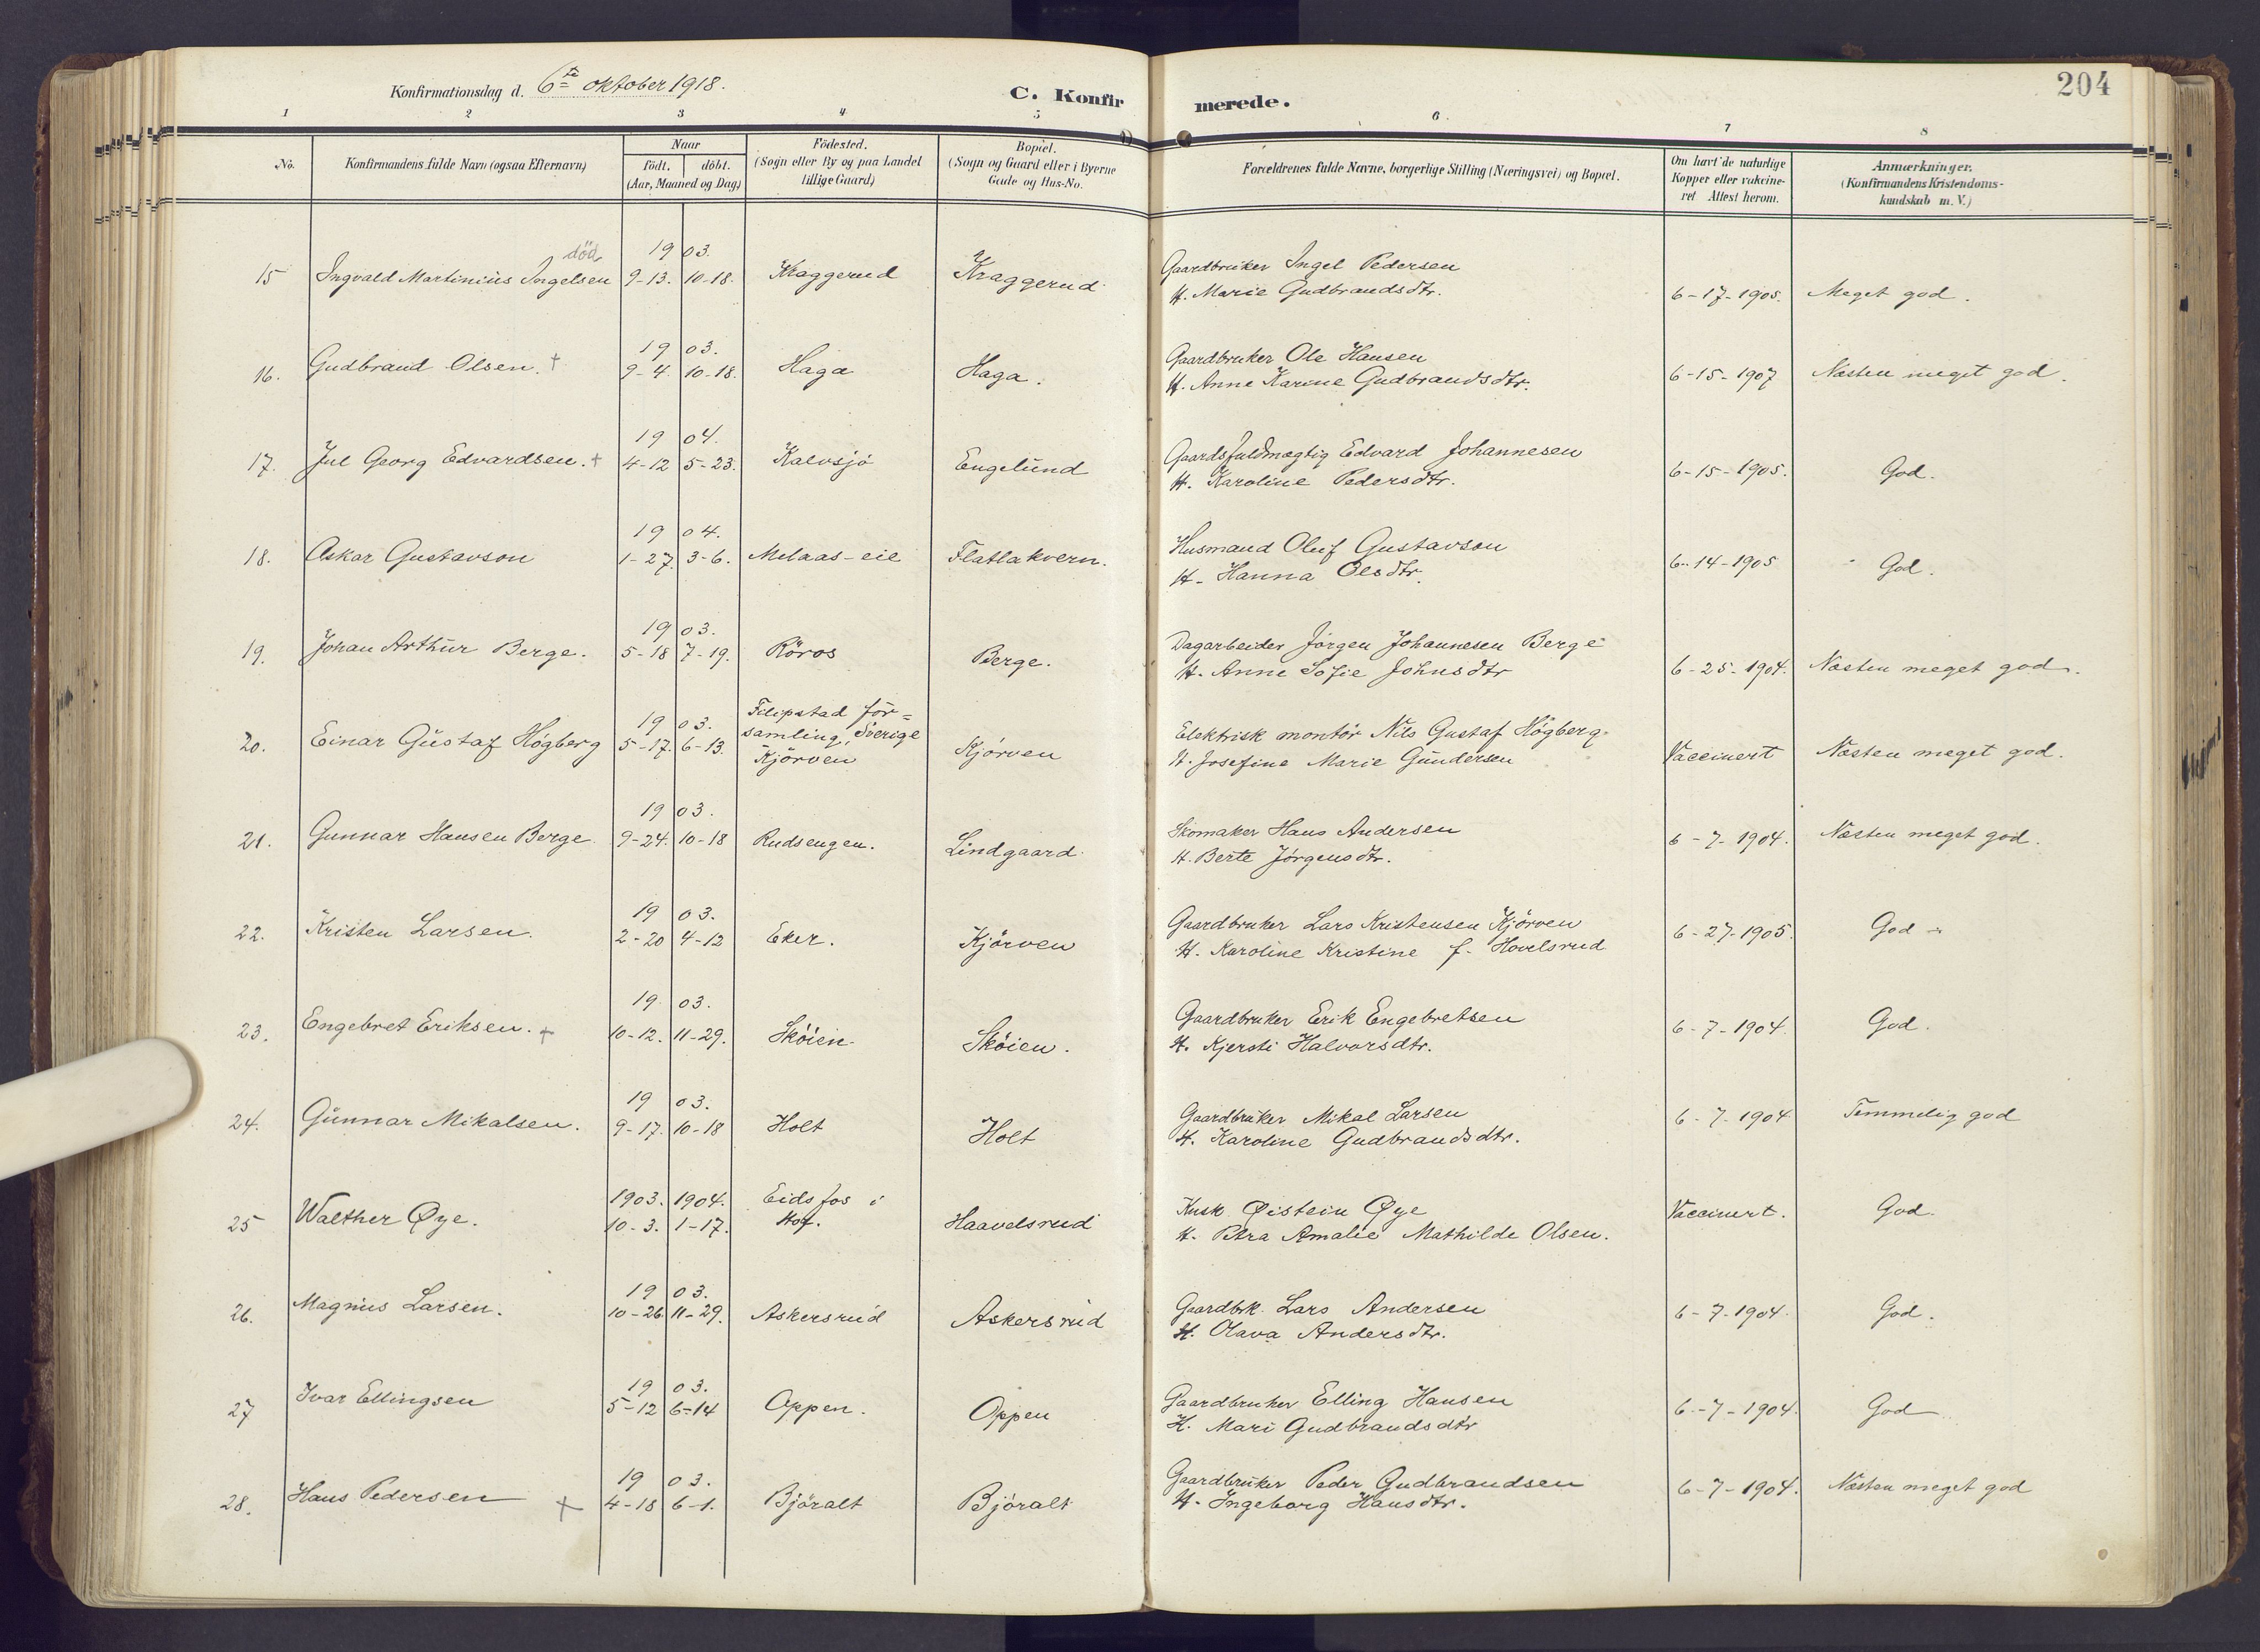 204
Konfirmationsdag d. 6te oktober 1918.
C. Konfirmerede.
1 2 3 4 5 6 7 8
No. | Konfirmandens fulde Navn (ogsaa Efternavn) | Naar født. døbt. (Aar, Maaned og Dag) | Fødested. (Sogn eller By og paa Landet tillige Gaard) | Bopæl. (Sogn og Gaard eller i Byerne Gade og Hus-No. | Forældrenes fulde Navne, borgerlige Stilling (Næringsvei) og Bopæl. | Om havt de naturlige Kopper eller vakcineret Attest herom. | Anmærkninger. (Konfirmandens Kristendomskundskab m. V.)
død
15 Ingvald Martinius Ingelsen 1903. 9-13. 10-18. Kraggerud Kraggerud Gaardbruker Ingel Pedersen
H. Marie Gudbrandsdtr. 6-17-1905. Meget god.
16. Gudbrand Olsen. + 1903. 9-4. 10-18. Haga Haga. Gaardbruker Ole Hansen
H. Anne Karine Gudbrandsdtr. 6-15-1907 Næsten meget god.
17. Jul Georg Edvardsen. + 1904. 4-12 5-23. Kalvsjø Engelund Gaardsfuldmægtig Edvard Johannesen
H. Karoline Pedersdtr. 6-15-1905. God.
18. Oskar Gustavson 1904. 1-27. 3-6. Melaas-eie Flatlakvern. Husmand Oluf Gustavson
H. Hanna Olsdtr. 6-14-1905 God.
19. Johan Arthur Berge. 1903. 5-18 7-19. Röros Berge. Dagarbeider Jørgen Johannesen Berge
H. Anne Sofie Johnsdtr 6-25-1904. Næsten meget god.
20. Einar Gustaf Högberg 1903. 5-17. 6-13. Filipstad för=
samling, Sverige
Kjörven Kjörven Elektrisk montör Nils Gustaf Högberg
H. Josefine Marie Gundersen Vaccinert Næsten meget god.
21. Gunnar Hansen Berge 1903. 9-24. 10-18 Rudsengen. Lindgaard Skomaker Hans Andersen
H. Berte Jörgensdtr. 6-7-1904. Næsten meget god.
22. Kristen Larsen. 1903. 2-20 4-12 Eker. Kjörven Gaardbruker Lars Kristensen Kjörven
H. Karoline Kristine f. Hovelsrud 6-27-1905. God
23. Engebret Eriksen. + 1903. 10-12. 11-29. Sköien Sköien. Gaardbruker Erik Engebretsen
H. Kjersti Halvorsdtr. 6-7-1904. God.
24. Gunnar Mikalsen. 1903. 9-17. 10-18 Holt Holt Gaardbruker Mikal Larsen
H. Karoline Gudbrandsdtr. 6-7-1904 Temmelig god
25 Walther Øye. 1903. 1904. 10-3. 1-17. Eidsfos i
Hof. Haavelsrud Kusk Øistein Øye
H. Petra Amalie Mathilde Olsen. Vaccinert. God.
26. Magnus Larsen. 1903. 10-26 11-29. Askersrud Askersrud Gaardbrk. Lars Andersen
H. Olava Andersdtr. 6-7-1904. God.
27 Ivar Ellingsen 1903. 5-12 6-14 Oppen. Oppen Gaardbruker Elling Hansen
H. Mari Gudbrandsdtr 6-7-1904. God
28. Hans Pedersen + 1903. 4-18 6-1. Björalt Björalt Gaardbruker Peder Gudbrandsen
H. Ingeborg Hansdtr. 6-7-1904. Næsten meget god